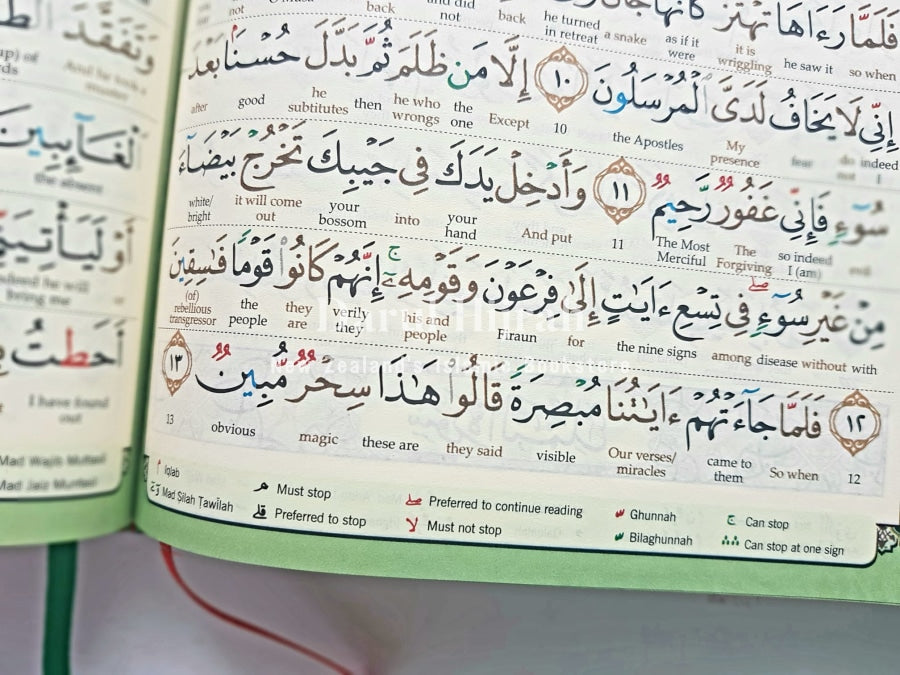 فَلَمَّا رَءَاهَا تَهْتَزُّ كَأَنَّهَا جَانٌّ
not back and did not back he turned in retreat a snake as if it were it is wriggling he saw it so when
إِنِّي لَا يَخَافُ لَدَىَّ ٱلْمُرْسَلُونَ ١٠ إِلَّا مَن ظَلَمَ ثُمَّ بَدَّلَ حُسْنًۢا بَعْدَ
after good he subtitutes then he who wrongs the one Except 10 the Apostles My presence fear do not indeed I
سُوٓءٍ فَإِنِّي غَفُورٌ رَّحِيمٌ ١١ وَأَدْخِلْ يَدَكَ فِي جَيْبِكَ تَخْرُجْ بَيْضَآءَ
white/ bright it will come out your bossom into your hand And put 11 The Most Merciful The Forgiving so indeed I (am) evil
مِنْ غَيْرِ سُوٓءٍ ۖ فِي تِسْعِ ءَايَٰتٍ إِلَىٰ فِرْعَوْنَ وَقَوْمِهِۦٓ ۚ إِنَّهُمْ كَانُوا۟ قَوْمًا فَٰسِقِينَ
(of) rebellious transgressor the people they are verily they his and people Firaun for the nine signs among disease without with
١٢ فَلَمَّا جَآءَتْهُمْ ءَايَٰتُنَا مُبْصِرَةً قَالُوا۟ هَٰذَا سِحْرٌ مُّبِينٌ ١٣
13 obvious magic these are they said visible Our verses/ miracles came to them So when 12
Iqlab
Mad Silah Tawilah
Must stop
Preferred to stop
Preferred to continue reading
Must not stop
Ghunnah
Bilaghunnah
Can stop
Can stop at one sign
New Zealand's Islamic Bookstore
وَتَفَقَّدَ
ٱلْغَآئِبِينَ
the absent
أَوْ لَيَأْتِيَنِّي
bring me
أَحَطتُ
I have found out